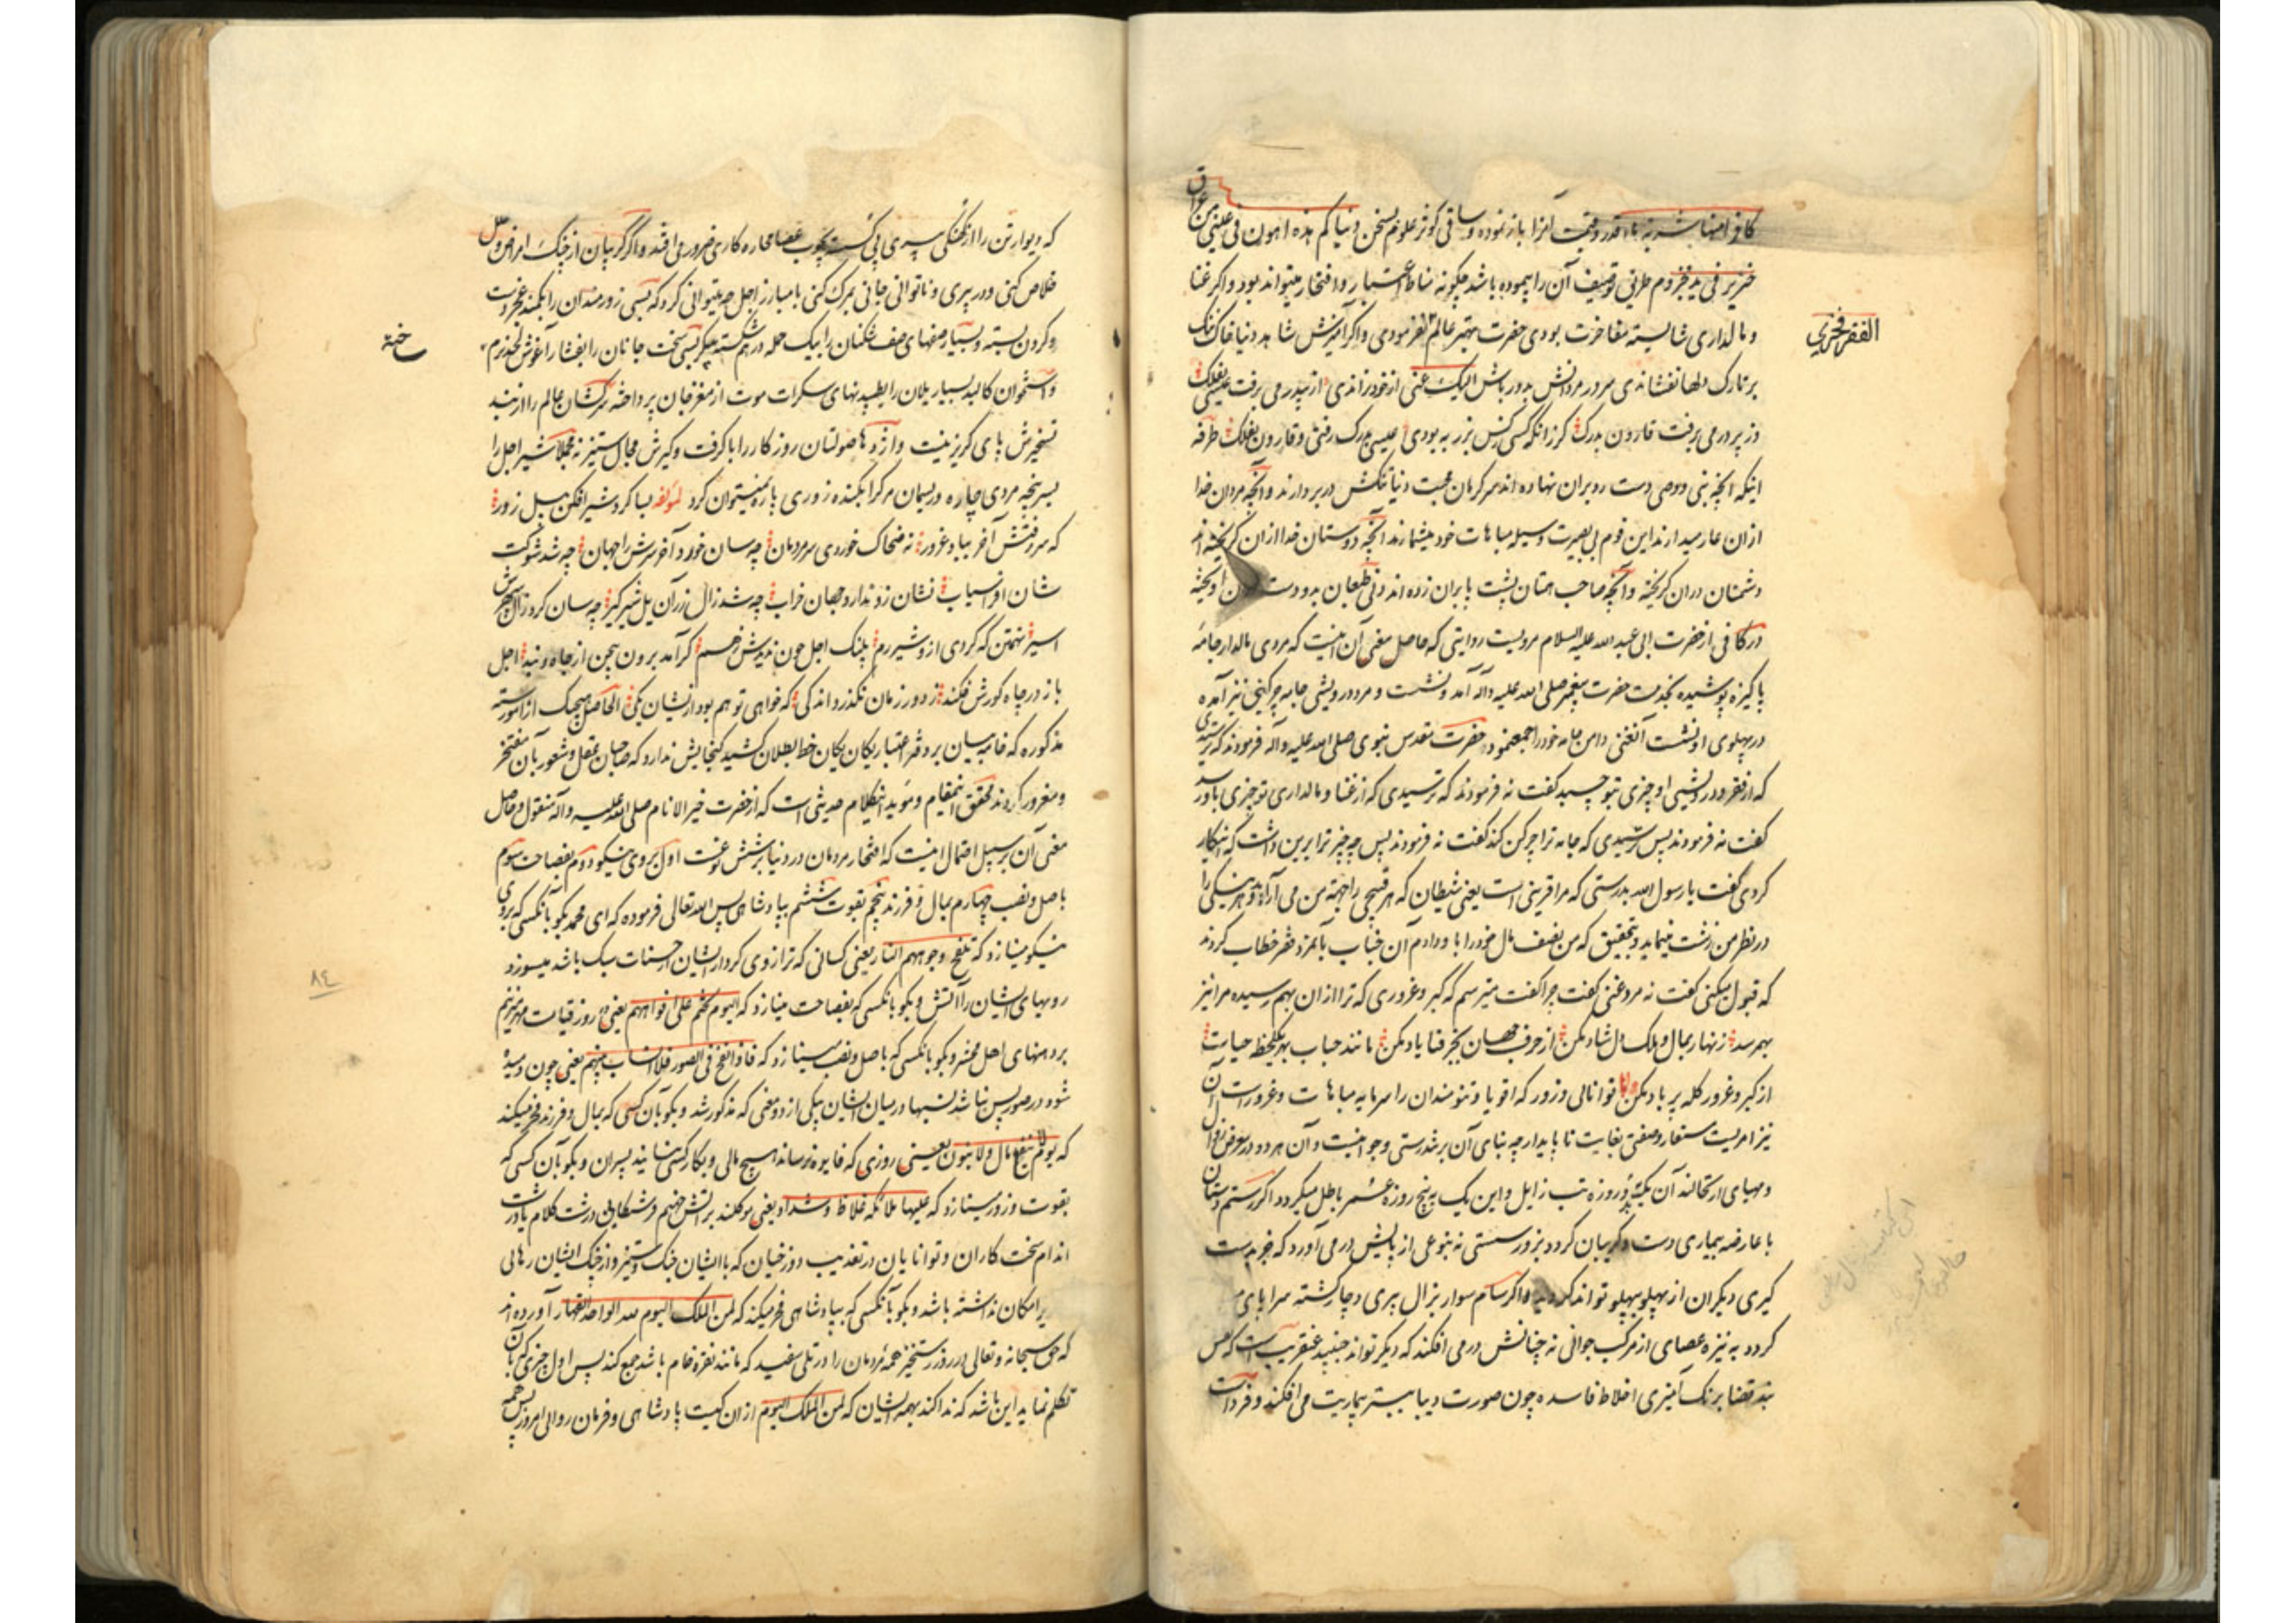 کافر منها شربة ماء قدر و قیمت آنرا باز نموده و ساقی کوثر علوم بسخن دنیاکم هذه اهون فی عینی من عراق
خنزیر فی ید مجذوم طریق توصیف آن را پیموده باشد چکونه مناط اعتبار و افتخار میتواند بود و اکر غنا
و مالداری شایسته مفاخرت بودی حضرت مهتر عالم الفقر فخری نفرمودی و اکر امیزش شاهد دنیا خاک ننک
بر تارک دلها نفشاندی سرور مردانش بدور باش الیک عنی از خود نراندی از پدر می برفت عیسی بفلک
وز پدر می برفت قارون بدرک کر زانکه کسی کش زر به بودی عیسی بدرک رفتی و قارون بفلک طرفه
اینکه آنچه نبی و وصی دست رد بران نهاده اند سرکرمان محبت دنیا تنکش در بر دارند و آنچه مردان خدا
ازان عار میدارند این قوم بی بصیرت وسیله مباهات خود میشمارند آنچه دوستان خدا ازان کریخته اند
دشمنان دران کریخته و آنچه صاحب همتان پشت پا بران زده اند دنی طبعان بدو دست آویخته
در کافی از حضرت ابی عبد الله علیه السلام مرویست روایتی که حاصل معنی آن اینست که مردی مالدار جامه
پاکیزه پوشیده بخدمت حضرت پیغمبر صلی الله علیه و آله آمد و نشست و مرد درویشی جامه چرکینی نیز آمده
در پهلوی او نشست آن غنی دامن جامه خود را جمع نمود حضرت مقدس نبوی صلی الله علیه و آله فرمودند که ترسیدی
که از فقر و درویشی او چیزی بتو چسبد کفت نه فرمودند که ترسیدی که از غنا و مالداری تو چیزی باو رسد
کفت نه فرمودند پس ترسیدی که جامه ترا چرکن کند کفت نه فرمودند پس چه چیز ترا برین داشت که اینکار
کردی کفت یا رسول الله بدرستی که مرا قرینی است یعنی شیطان که هر قبیحی را جهة من می آراید و هر نیکی را
در نظر من زشت مینماید و بتحقیق که من نصف مال خود را باو دادم آن جناب بآنمرد فقیر خطاب کردند
که قبول میکنی کفت نه مرد غنی کفت چرا کفت میترسم که کبر و غروری که ترا ازان بهم رسیده مرا نیز
بهم رسد زنهار بمال و ملک دل شاد مکن از حرف جهان بجز فنا یاد مکن مانند حباب بهر یکلحظه حیات
از کبر و غرور کله پر باد مکن و اما توانائی و زور که اقویا و تنومندان را سرمایه مباهات و غرور است آن
نیز امریست مستعار و صفتی بغایت ناپایدار چه بنای آن بر تندرستی و جوانیست و آن هر دو در معرض زوال
و مهیای ارتحالند آن بیکتب دو روزه تب زایل و این یک به پنج روزه عمر باطل میکردد اکر رستم دستان
با عارضه بیماری دست و کریبان کردد بزور سستی نه بنوعی از پایش در می آورد که خود بدست
کیری دیکران از پهلو بپهلو تواند کردید و اکر سام سوار بزال پیری دچار کشته سراپای
کردد به نیزه عصای از مرکب جوانی نه چنانش در می افکند که دیکر تواند جنبید عنقریب است که نقش
بند قضا برنک آمیزی اخلاط فاسده چون صورت دیبا ببستر بیماریت می افکند و فرداست
الفقر فخری
که دیوار تن را از کهنکی پیری پی شکسته بچوب عصا محاره کاری ضرور می افتد و اکر کریبان از چنک امراض و علل
خلاص کنی و در پیری و ناتوانی جانی بمرک کنی با مبارز اجل چه میتوانی کرد که بسی زورمندان را بکمند عجز دست
و کردن بسته و بسیار صفهای صف شکنان را بیک حمله در هم شکسته پیکر بسی سخت جانان را بفشار آغوش لحد نرم
و استخوان کالبد بسیار یلان را بطپیدنهای سکرات موت از مغز جان پرداخته سرکشان عالم را از بند
تسخیرش پای کریز نیست و اژدها صولتان روزکار را با کرفت و کیرش مجال ستیز نه مجملا شیر اجل را
بسر پنجه مردی چاره و ریسمان مرک را بکنده زوری پاره نمیتوان کرد لمؤلفه بسا کرد شیر افکن پیل زور
که سر رفتش آخر بباد غرور نه ضحاک خوردی سر مردمان چه سان خورد آخر سرش را جهان چه شد شوکت
شان افراسیاب نشان زو ندارد جهان خراب چه شد زال زر آن یل شیر کیر چه سان کرد زال سپهرش
اسیر تهمتن که کردی ازو شیر رم پلنک اجل چون ندیدش ز هم کر آمد برون بیژن از چاه و بند اجل
باز در چاه کورش فکند ز دور زمان نکذرد اندکی که خواهی تو هم بود ازیشان یکی الحاصل هیچیک از امور سته
مذکوره که خامه بیان بر دفتر اعتبار یکان یکان خط بطلان کشید کنجایش ندارد که صاحبان عقل و شعور بآن مفتخر
و مغرور کردند محقق اینمقام و مؤید این کلام حدیثی است که از حضرت خیر الانام صلی الله علیه و آله منقول و حاصل
معنی آن بر سبیل اجمال اینست که افتخار مردمان در دنیا بر شش نوعست اول بروی نیکو دوم بفصاحت سوم
باصل و نسب چهارم بمال و فرزند پنجم بقوت ششم بپادشاهی پس الله تعالی فرموده که ای محمد بکو بآنکسی که بروی
نیکو مینازد که تلفح وجوههم النار یعنی کسانی که ترازوی کردار ایشان از حسنات سبک باشد میسوزد
رویهای ایشان را آتش و بکو بآنکسی که بفصاحت مینازد که الیوم نختم علی افواههم یعنی در روز قیامت مهر میزنیم
بر دهنهای اهل محشر و بکو بآنکسی که باصل و نسب مینازد که فاذا نفخ فی الصور فلا انساب بینهم یعنی چون دمیده
شود در صور پس نباشد نسبها در میان ایشان بیکی از دو معنی که مذکور شد و بکو بآن کسی که بمال و فرزند فخر میکند
که یوم لا ینفع مال و لا بنون یعنی روزی که فایده نرساند هیچ مالی و بکار کسی نیایند پسران و بکو بآن کسی که
بقوت و زور مینازد که علیها ملائکة غلاظ و شداد یعنی موکلند بر آتش جهنم فرشتکانی درشت کلام یا درشت
اندام سخت کاران و توانایان در تعذیب دوزخیان که با ایشان جنک و ستیز و از چنک ایشان رهائی
امکان نداشته باشد و بکو بآنکسی که بپادشاهی فخر میکند که لمن الملک الیوم لله الواحد القهار آورده اند
که حق سبحانه و تعالی در روز رستخیز همه مردمان را در تلی سفید که مانند نقره خام باشد جمع کند پس اول چیزی که بآن
تکلم نماید این باشد که ندا کند بهمه ایشان که لمن الملک الیوم از ان کیست پادشاهی و فرمان روائی امروز پس همه
ختة
٨٤